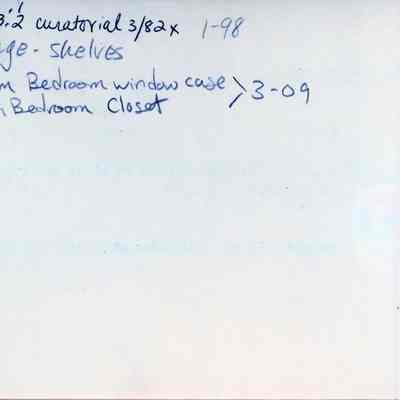 3:2 curatorial 3/82x 1-98
ge - shelves
m Bedroom window case > 3-09
n Bedroom Closet